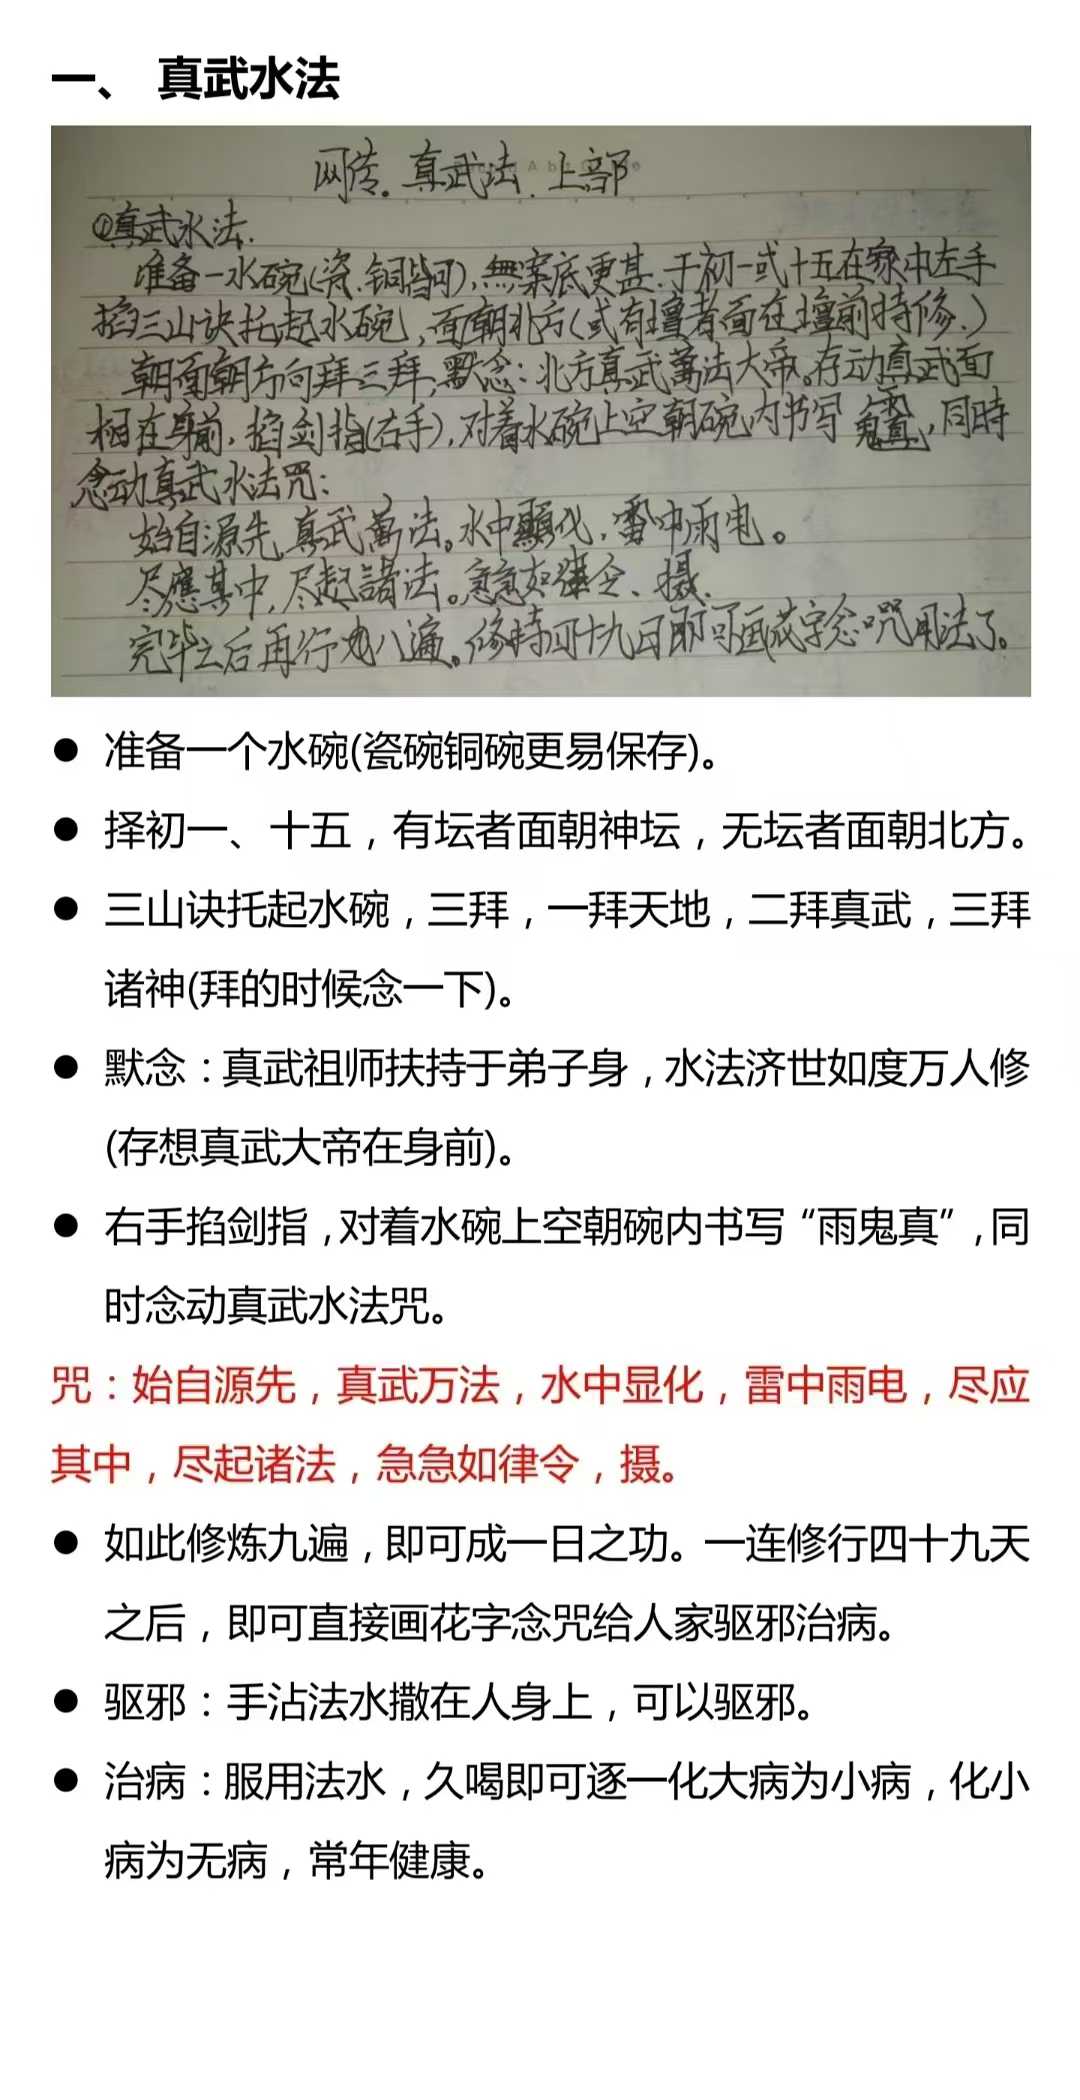 一、 真武水法
网传。真武法.上部
①真武水法.
准备一水碗(瓷.铜皆可),無案底更甚.于初一或十五在家中左手
掐三山诀托起水碗,面朝北方(或有壇者面在壇前持修.)
朝面朝方向拜三拜,默念:北方真武萬法大帝。存动真武面
相在身前,掐剑指(右手),对着水碗上空朝碗内书写,同時
念动真武水法咒:
始自源先,真武萬法。水中顯化,雷中雨电。
尽應其中,尽起諸法。急急如律令、摄.
完毕之后再行八遍。修持四十九日即可画花字念咒用法了。
● 准备一个水碗(瓷碗铜碗更易保存)。
● 择初一、十五，有坛者面朝神坛，无坛者面朝北方。
● 三山诀托起水碗，三拜，一拜天地，二拜真武，三拜
诸神(拜的时候念一下)。
● 默念：真武祖师扶持于弟子身，水法济世如度万人修
(存想真武大帝在身前)。
● 右手掐剑指，对着水碗上空朝碗内书写“雨鬼真”，同
时念动真武水法咒。
咒：始自源先，真武万法，水中显化，雷中雨电，尽应
其中，尽起诸法，急急如律令，摄。
● 如此修炼九遍，即可成一日之功。一连修行四十九天
之后，即可直接画花字念咒给人家驱邪治病。
● 驱邪：手沾法水撒在人身上，可以驱邪。
● 治病：服用法水，久喝即可逐一化大病为小病，化小
病为无病，常年健康。